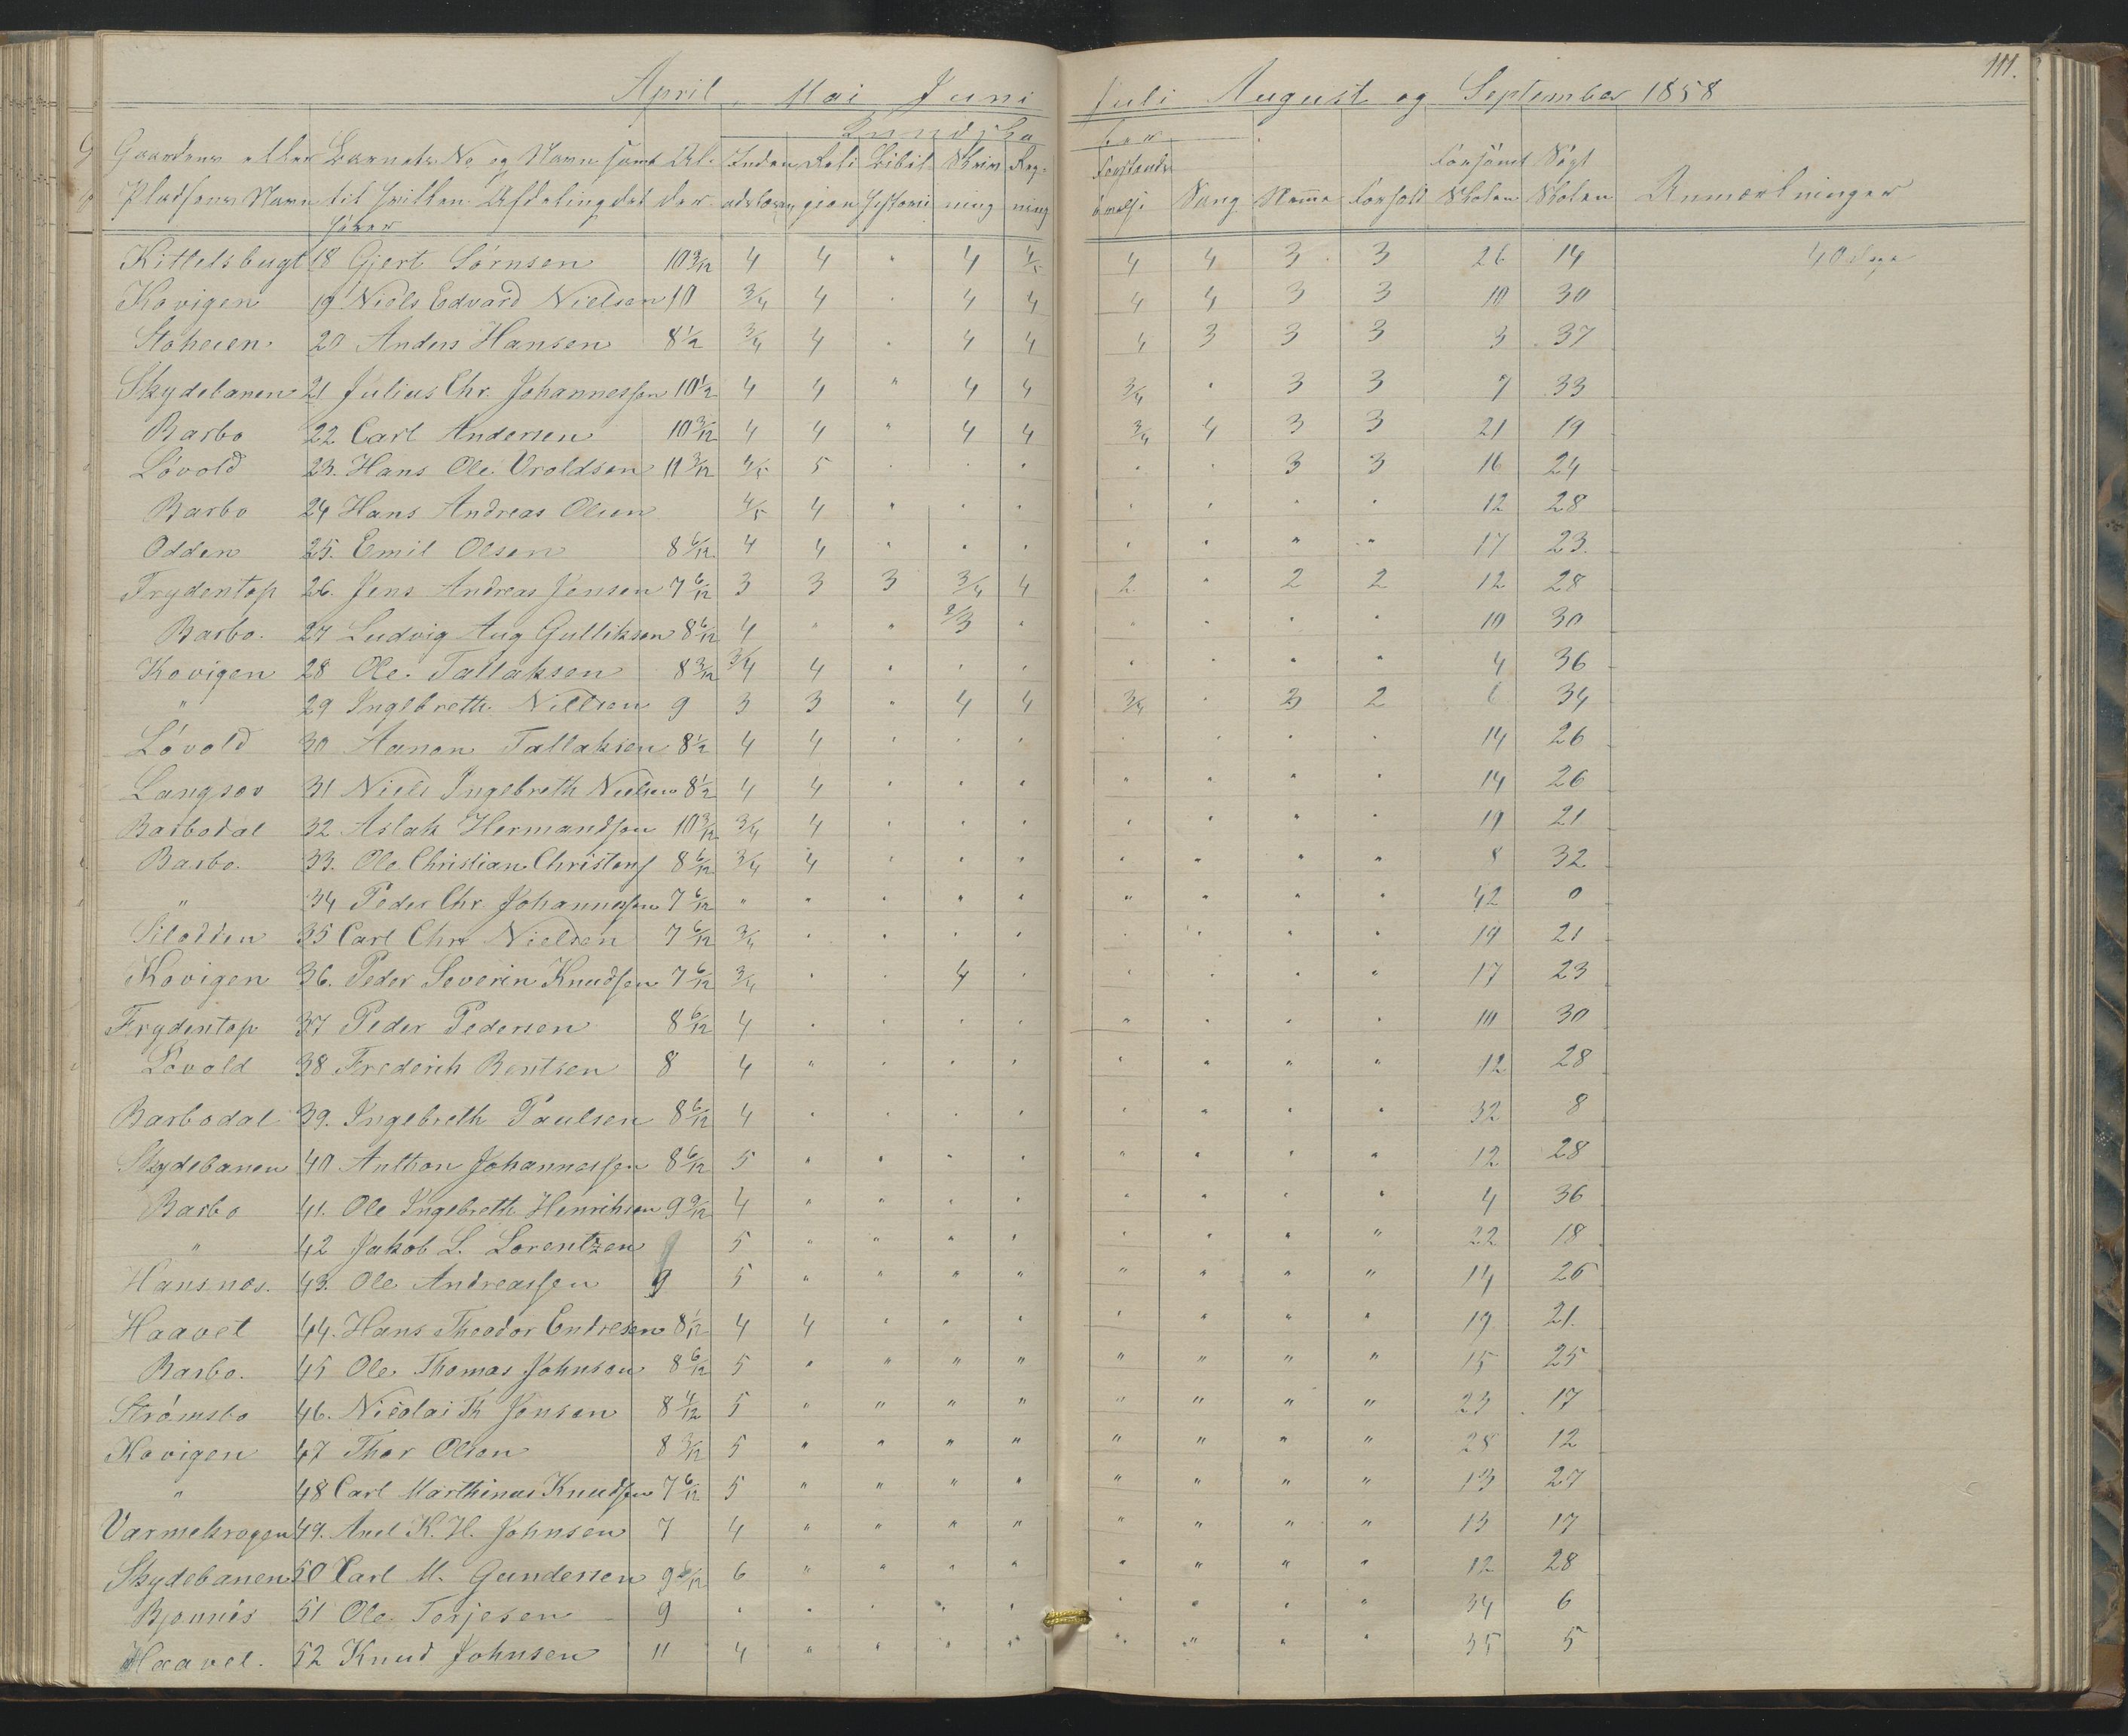 111.
April, Mai Juni Juli August og September 1858
Kundska ber
Gaardens eller Barnets No og Navn samt Al- Inden Reli Bibel Skriv Reg- Forstands Forsømt Søgt
Pladsens Navn til hvilken Afdeling det der adslæsn gion historie ning ning øvelse Sang Stemme Forhold Skolen Skolen Anmærkninger
hører
Kittelsbugt 18 Gjert Sørnsen 10 3/12 4 4 " 4 4/5 4 4 3 3 26 14 40 Dage
Kovigen 19 Niels Edvard Nielsen 10 3/4 4 " 4 4 4 4 3 3 10 30
Stoheien 20 Anders Hansen 8 1/2 3/4 4 " 4 4 4 3 3 3 3 37
Skydebanen 21 Julius Chr. Johannessen 10 1/2 4 4 " 4 4 3/4 " 3 3 7 33
Barbo 22 Carl Andersen 10 3/12 4 4 " 4 4 3/4 4 3 3 21 19
Løvold 23. Hans Ole Vroldsen 11 3/12 4/5 5 " " " " " 3 3 16 24
Barbo 24 Hans Andreas Olsen 4/5 4 " " " " " " " 12 28
Odden 25. Emil Olsen 8 6/12 4 4 " " " " " " " 17 23
Frydentop 26. Jens Andreas Jensen 7 6/12 3 3 3 3/4 4 2 " 2 2 12 28
Barbo. 27 Ludvig Aug Gulliksen 8 6/12 4 " " 2/3 " " " " " 10 30
Kovigen 28 Ole Tallaksen 8 3/12 3/4 4 " " " " " " " 4 36
" 29 Ingebreth Nielsen 9 3 3 " 4 4 3/4 " 3 2 6 34
Løvold 30 Hanon Tallaksen 8 1/2 4 4 " " " " " " " 14 26
Langsæv 31 Niels Ingebreth Nielsen 8 1/2 4 4 " " " " " " " 14 26
Barbodal 32 Aslak Hermandsen 10 3/12 3/4 4 " " " " " " " 19 21
Barbo. 33. Ole Christian Christens 8 6/12 3/4 4 " " " " " " " 8 32
" 34 Peder Chr. Johannessen 7 6/12 " " " " " " " " " 42 0
Silodden 35 Carl Chr Nielsen 7 6/12 3/4 " " " " " " " " 19 21
Kovigen 36. Peder Severin Knudsen 7 6/12 3/4 " " 4 " " " " " 17 23
Frydentop 37 Peder Pedersen 8 6/12 4 " " " " " " " " 10 30
Løvold 38 Frederik Bentsen 8 4 " " " " " " " " 12 28
Barbodal 39. Ingebreth Paulsen 8 6/12 4 " " " " " " " " 32 8
Skydebanen 40 Anthon Johannessen 8 6/12 5 " " " " " " " " 12 28
Barbo 41. Ole Ingebreth Henriksen 9 9/12 4 " " " " " " " " 4 36
" 42 Jakob L. Lorentzen 5 " " " " " " " " 22 18
Hansnæs. 43. Ole Andreassen 9 5 " " " " " " " " 14 26
Haavet 44. Hans Theodor Endresen 8 1/12 4 4 " " " " " " " 19 21.
Barbo. 45 Ole Thomas Johnsen 8 6/12 5 " " " " " " " " 15 25
Strømsbo 46. Nicolai Th Jensen 8 4/12 5 " " " " " " " " 23 17
Kovigen 47 Thor Olsen 8 3/12 5 " " " " " " " " 28 12
" 48 Carl Marthinus Knudsen 7 6/12 5 " " " " " " " " 13 27
Varmekrogen 49. Axel K. H. Johnsen 7 4 " " " " " " " " 13 17
Skydebanen 50 Carl M. Gundersen 9 6/12 6 " " " " " " " " 12 28
Bjønnes 51 Ole Terjesen 9 " " " " " " " " " 34 6
Haavet. 52 Knud Johnsen 11 4 " " " " " " " " 35 5